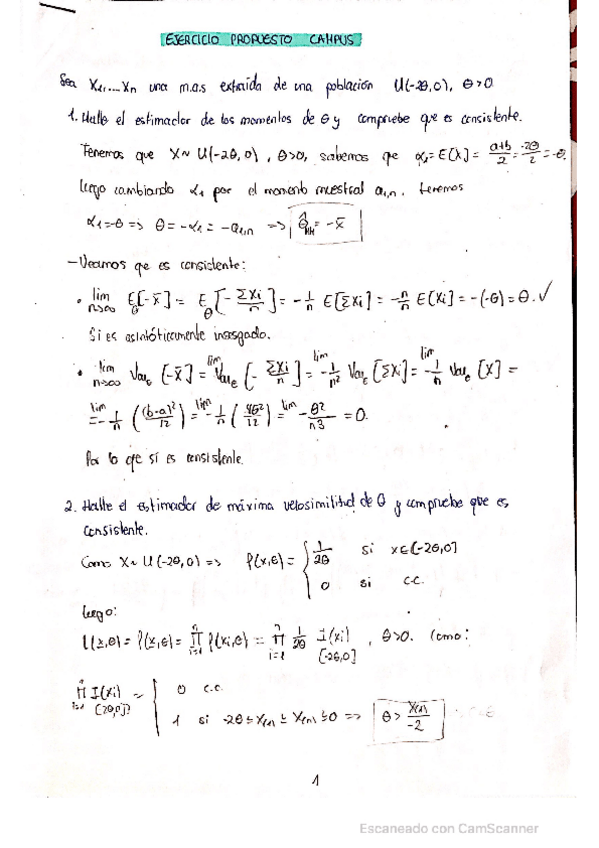 EJERCICIO PROPUESTO CAMPUS
Sea X₁,...,Xn una m.a.s extraída de una población U(-2θ,0), θ>0
1. Halle el estimador de los momentos de θ y compruebe que es consistente.
Tenemos que X~U(-2θ,0), θ>0, sabemos que α₁=E[X]= (a+b)/2 = -2θ/2 = -θ.
luego cambiando α₁ por el momento muestral a₁,n. tenemos
α₁=-θ => θ=-α₁ = -a₁,n => θ̂MM = -x̄
- Veamos que es consistente:
• lim n→∞ Eθ[-x̄] = Eθ[-ΣXi/n] = -1/n E[ΣXi] = -n/n E[Xi] = -(-θ) = θ. ✓
Si es asintóticamente insesgado.
• lim n→∞ Varθ[-x̄] = lim Varθ[-ΣXi/n] = lim -1/n² Varθ[ΣXi] = lim -1/n Varθ[X] =
= lim -1/n ((b-a)²/12) = lim -1/n (4θ²/12) = lim -θ²/n3 = 0.
Por lo que sí es consistente.
2. Halle el estimador de máxima velosimilitud de θ y compruebe que es
consistente.
Como X~U(-2θ,0) => f(x,θ) = { 1/2θ si x∈[-2θ,0]
0 si c.c.
luego:
L(x,θ) = f(x,θ) = ∏ i=1 n f(xi,θ) = ∏ i=1 n 1/2θ I(xi) [-2θ,0] , θ>0. Como:
∏ i=1 n I(xi) [-2θ,0] = { 0 c.c.
1 si -2θ ≤ X(1) ≤ X(n) ≤ 0 => θ > X(1)/-2
1
Escaneado con CamScanner